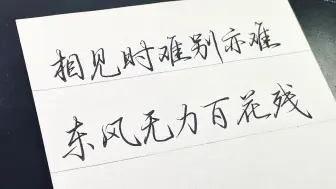 相见时难别亦难
东风无力百花残